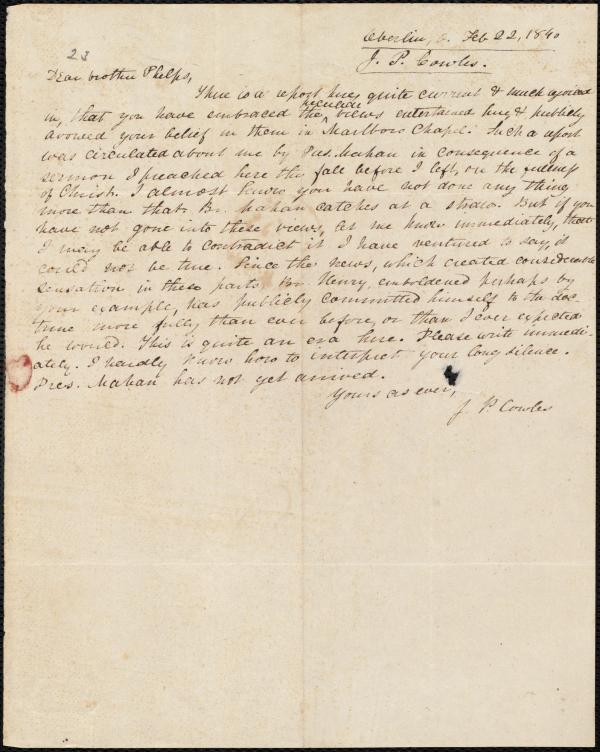 Oberlin, O. Feb 22, 1840
J. P. Cowles.
23
Dear brother Phelps,
There is a report here, quite current & much rejoiced
peculiar
in, that you have embraced the views entertained here & publicly
avowed your belief in them in Marlboro Chapel. Such a report
was circulated about me by Pres. Mahan in consequence of a
sermon I preached here the fall before I left, on the fullness
of Christ. I almost know you have not done any thing
more than that. Br. Mahan catches at a straw. But if you
have not gone into these views, let me know immediately, that
I may be able to contradict it. I have ventured to say, it
could not be true. Since the news, which created considerable
sensation in these parts, Br. Henry, emboldened perhaps by
your example, has publicly committed himself to the doc-
trine more fully than ever before, or than I ever expected
he would. This is quite an era here. Please write immedi-
ately. I hardly know how to interpret your long silence.
Pres. Mahan has not yet arrived.
Yours as ever,
J. P. Cowles